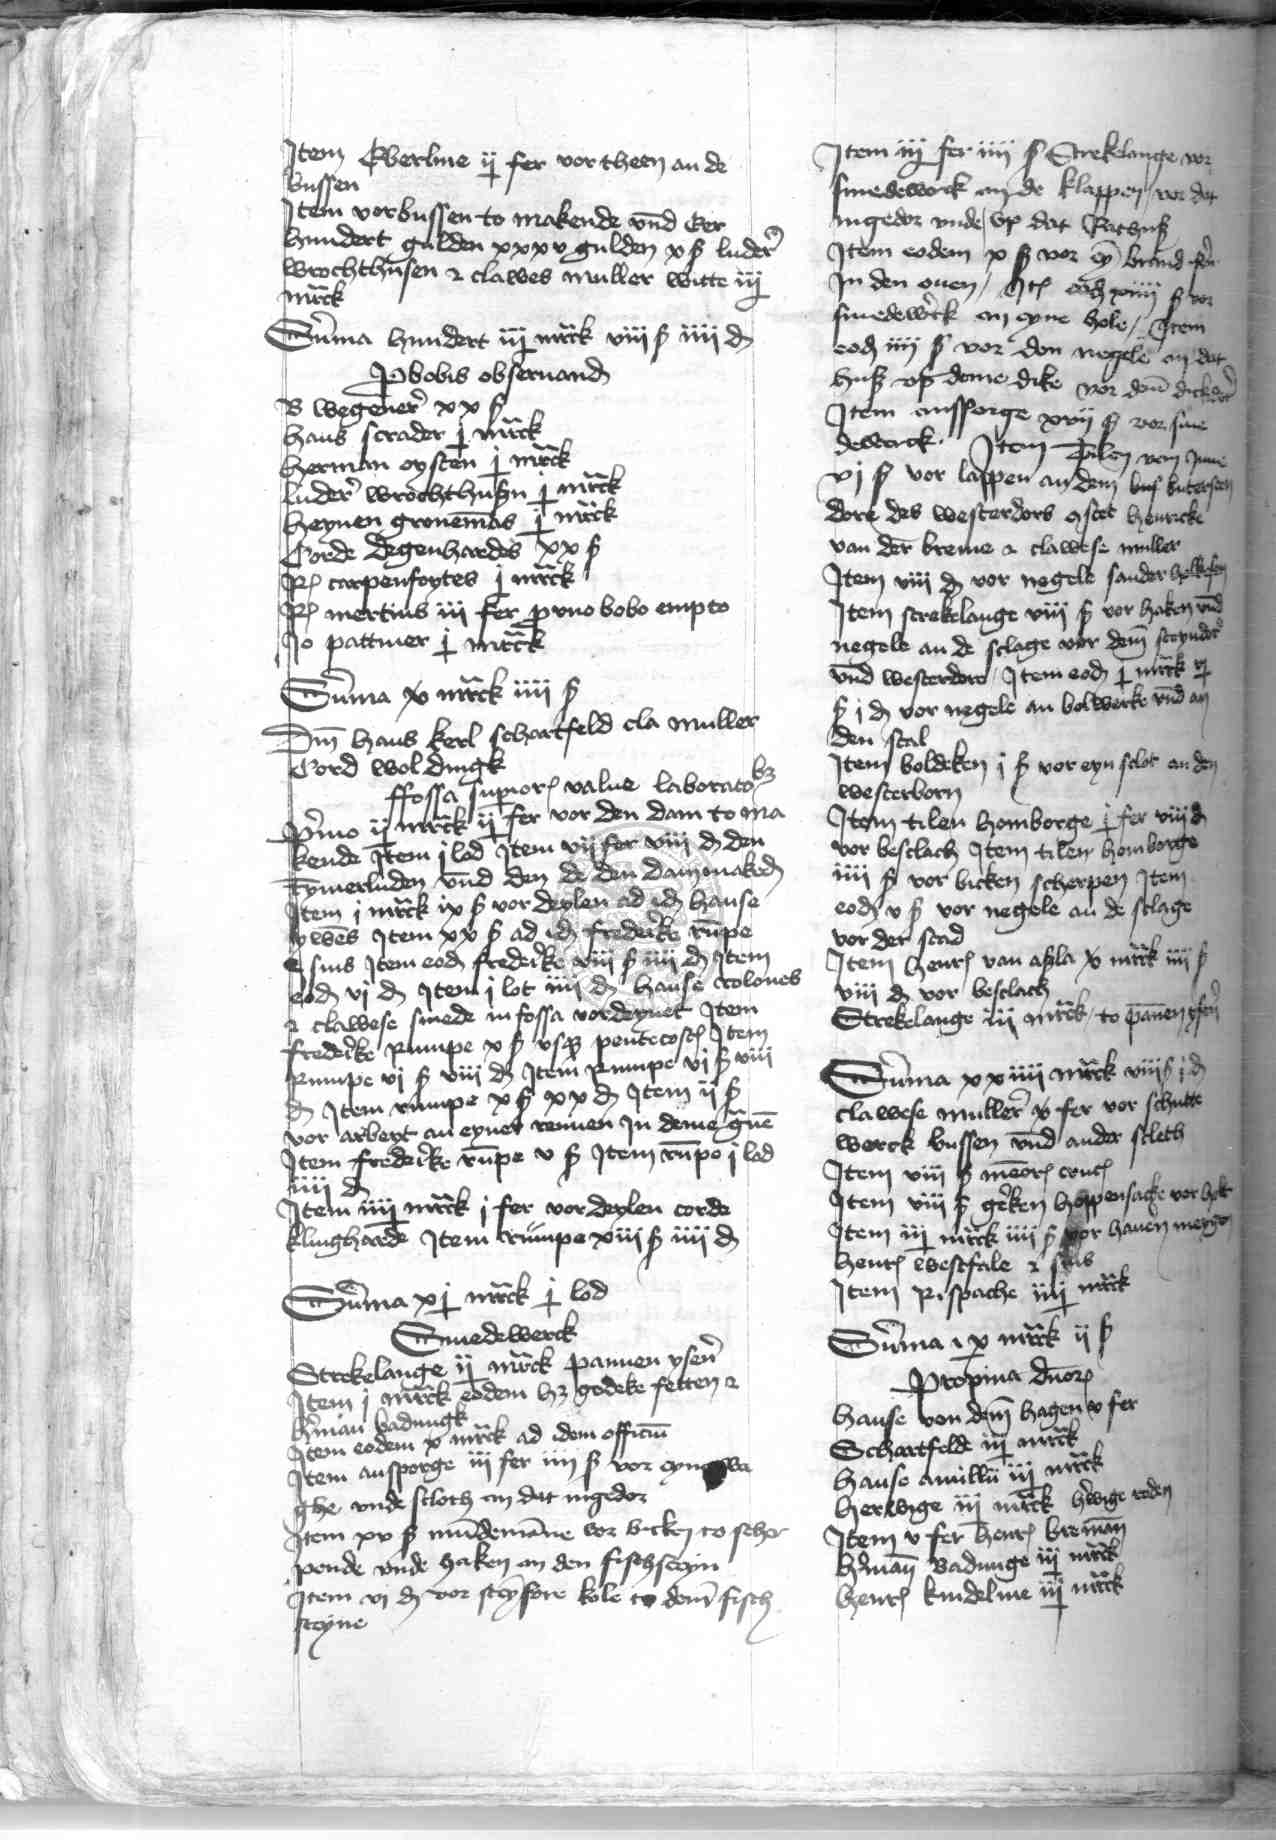 Item Everline ij fer vor theen an de
bussen
Item vor bussen to makende vnd ver
hundert gulden xxxv gulden x ß luderˀ
wrochthusen ⁊ clawes muller witte iij
mrck
Suma hundert iij mrck viii ß iiii d
P bobis obseruand
B wegenerˀ xx ß
hans scrader j mrck
herman oysten j mrck
luderˀ wrochthusen j mrck
heynen gronemās j mrck
Corde Degenhardes xx ß
carpensoytes j mrck
mertins iii fer p vno bobo empto
Jo pattiner j mrck
Suma x mrck iiii ß
Dm̄ hans kerl schartfeld cla muller
Cord woldingk
ffossa supior value laborato
Pˀmo ij mrck ij fer vor den dam to ma
kende Item j lod Item vij fer viii d den
tymerluden vnd den de den dam maked
Item j mrck ix ß vor deylen ad id hanse
Item xx ß ad id frederke rūpe
⁊ suis Item eod frederke viii ß iiii d Item
eod vj d Item j lot iiii d hanse Coloneb
⁊ clawese smede in fossa vordeynet Item
frederke Rumpe x ß vsq pentecost Item
Rumpe vj ß viii d Item Rumpe vj ß viii
d Item rumpe x ß xx d Item ij ß
vor arbeyt an eyner rennen In deme
Item frederke rūpe v ß Item rūpe j lod
iiii d
Item iiii mrck j fer vor deylen corde
klinghardē Item rumpe xiii ß iiii d
Suma xj mrck j lod
Smedewerck
Strekelange ij mrck pannen ysenˀ
Item j mrck eodem godeke fetten ⁊
hˀman badungk
Item eodem x mrck ad idem officiū
Item ansporge iii fer iiii ß vor
ghe vnde sloth an dat ingedor
Item xv ß mūdemāne vor bicken to scher
pende vnde haken an den fischsteyn
Item vi d vor kole to dem fisch
steyne
Item iij fer iiii ß Strekelange vor
smedewerck an de klappen vor dat
ingedor vnde vp dat Rathus
Item eodem x ß vor brand
In den ouen Itē eod xiiii ß vor
smedewerck an eyne hole Item
eod iiii ß vor den negele an dat
huß vp deme dike vor
Item ansporge xvii ß vor sme
dewerck Item Tilen vom
xj ß vor lappen an dem butersten
dore des westerdors hinricke
van der breme ⁊ clawese muller
Item viii d vor negele sander
Item strekelange viii ß vor haken vnd
negele an de slage vor dem steyndor
vnd westerdore Item eod j mrck xj
ß j d vor negele an bolwerke vnd an
den stal
Item boldeken j ß vor eyn slot an den
westerborn
Item tilen homborge j fer viii d
vor beslach Item tilen homborge
iiii ß vor bicken scherpen Item
eod v ß vor negele an de slage
vor der stad
Item henr van x mrck iiii ß
viii d vor beslach
Strekelange iii mrck to pānen ysenˀ
Suma xxiiii mrck viii ß j d
clawese mullerˀ x fer vor schutte
werck bussen vnd ander sleth
Item viii ß meor cruc
Item viii ß gerken hoppensacke vor holt
Item iij mrck iiii ß vor hauen
henr westfale ⁊ suis
Item R spache iij mrck
Suma ix mrck ij ß
Propina dnor
hanse von dem hagen v fer
Schartfelde iij mrck
hanse iii mrck
herwige iij mrck hˀwige roden
Item v fer henr breman
hˀman Badunge iij mrck
henr kindeline iij mrck